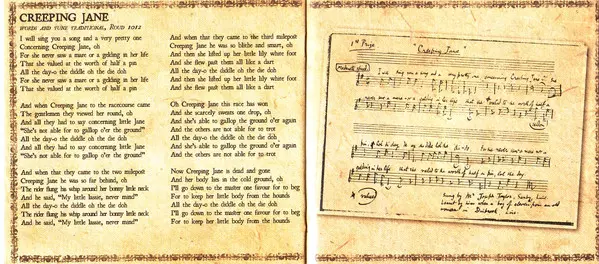 CREEPING JANE
WORDS AND TUNE TRADITIONAL, ROUD 1012
I will sing you a song and a very pretty one
Concerning Creeping Jane, oh
For she never saw a mare or a gelding in her life
That she valued at the worth of half a pin
All the day-o the diddle oh the die doh
For she never saw a mare or a gelding in her life
That she valued at the worth of half a pin
And when Creeping Jane to the racecourse came
The gentlemen they viewed her round, oh
And all they had to say concerning little Jane
"She's not able for to gallop o'er the ground"
All the day-o the diddle oh the die doh
And all they had to say concerning little Jane
"She's not able for to gallop o'er the ground"
And when that they came to the two milepost
Creeping Jane he was so far behind, oh
The rider flung his whip around her bonny little neck
And he said, "My little lassie, never mind!"
All the day-o the diddle oh the die doh
The rider flung his whip around her bonny little neck
And he said, "My little lassie, never mind!"
And when that they came to the third milepost
Creeping Jane she was so blithe and smart, oh
And then she lifted up her little lily white foot
And she flew past them all like a dart
All the day-o the diddle oh the die doh
And then she lifted up her little lily white foot
And she flew past them all like a dart
Oh Creeping Jane this race has won
And she scarcely sweats one drop, oh
And she's able to gallop the ground o'er again
And the others are not able for to trot
All the day-o the diddle oh the die doh
And she's able to gallop the ground o'er again
And the others are not able for to trot
Now Creeping Jane is dead and gone
And her body lies in the cold ground, oh
I'll go down to the master one favour for to beg
For to keep her little body from the hounds
All the day-o the diddle oh the die doh
I'll go down to the master one favour for to beg
For to keep her little body from the hounds
1st Prize
"Creeping Jane"
Moderate speed
I will sing you a song and a very pretty one concerning Creeping Jane
never saw a mare or a gelding in her life that she valued to the worth of half a
pin
value
Sung by Mr Joseph Taylor, Saxby, Lincs